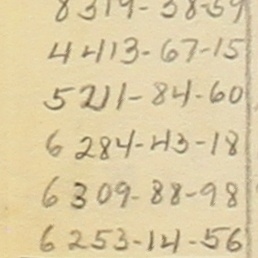 8 319-38-59
4 413-67-15
5 211-84-60
6 284-43-18
6 309-88-98
6 253-14-56